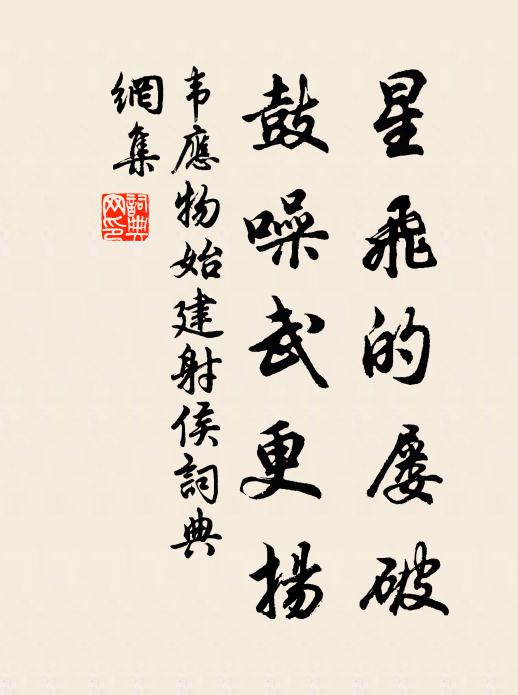 星飛的屡破
鼓噪武更揚
韦應物始建射侯詞典
網集
詞典
网印